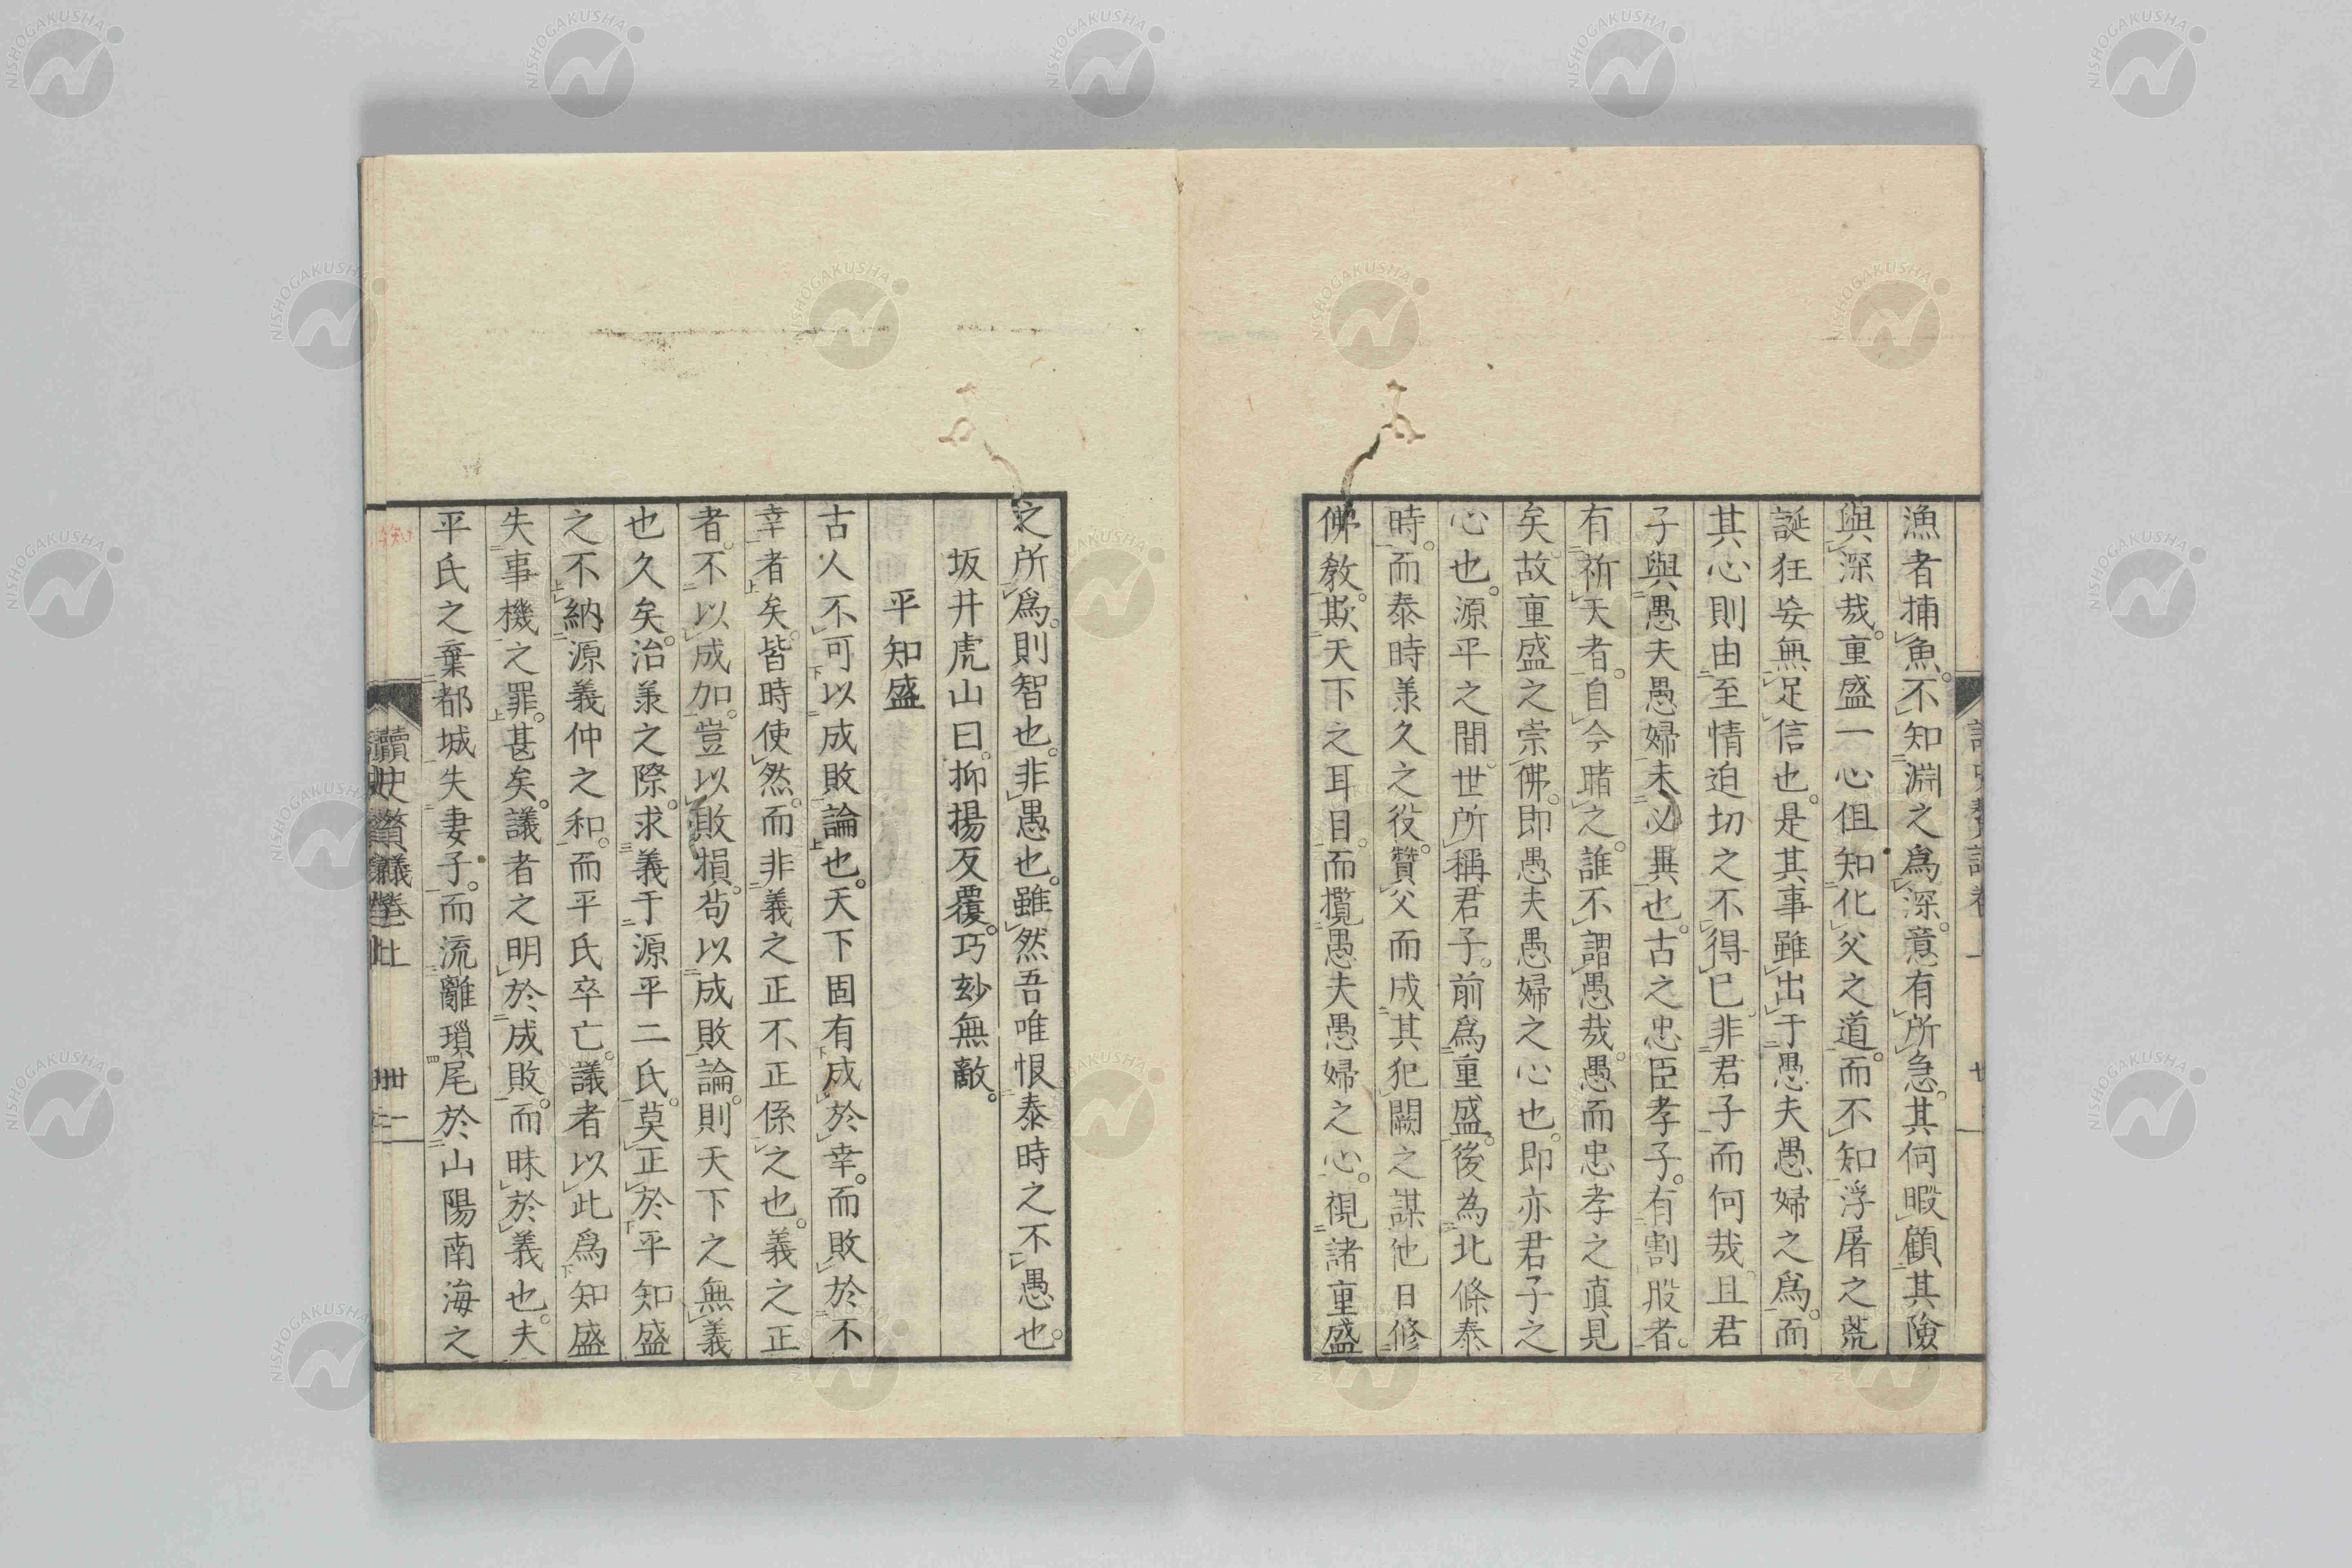 漁者捕魚。不知淵之爲深。意有所急。其何暇顧其險
與深哉。重盛一心但知化父之道。而不知浮屠之荒
誕狂妄無足信也。是其事雖出于愚夫愚婦之爲。而
其心則由至情迫切之不得已。非君子而何哉。且君
子與愚夫愚婦未必異也。古之忠臣孝子。有割股者。
有祈天者。自今睹之。誰不謂愚哉。愚而忠孝之眞見
矣。故重盛之崇佛。即愚夫愚婦之心也。即亦君子之
心也。源平之間。世所稱君子。前爲重盛。後為北條泰
時。而泰時承久之役。贊父而成其犯闕之謀。他日修
佛教。欺天下之耳目。而攬愚夫愚婦之心。視諸重盛
之所爲。則智也。非愚也。雖然吾唯恨泰時之不愚也。
坂井虎山曰。抑揚反覆。巧玅無敵。
平知盛
古人不可以成敗論也。天下固有成於幸。而敗於不
幸者矣。皆時使然。而非義之正不正係之也。義之正
者。不以成加。豈以敗損。苟以成敗論。則天下之無義
也久矣。治承之際。求義于源平二氏。莫正於平知盛
之不納源義仲之和。而平氏卒亡。議者以此爲知盛
失事機之罪。甚矣。議者之明於成敗。而昧於義也。夫
平氏之棄都城失妻子。而流離瑣尾於山陽南海之
讀史贅議卷上
卅一
NISHOGAKUSHA